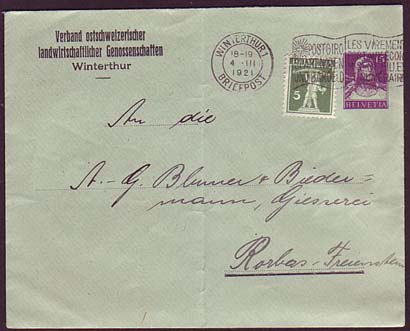 Verband ostschweizerischer
landwirtschaftlicher Genossenschaften
Winterthur
WINTERTHUR 1
18-19
4 · III
1921
BRIEFPOST
POSTGIRO
LES VIREMENTS
5
15
HELVETIA
An die
A.-G. Blumer & Bieder-
mann, Giesserei
Rorbas-Freienstein